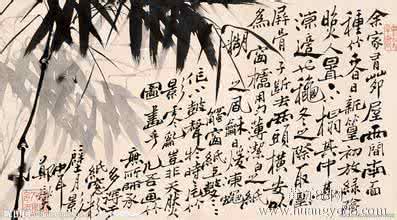 余家有茆屋二間南面
種竹夏日新篁初放綠陰
照人置一小榻其中甚
涼適也秋冬之際取圍
屏骨子斷去兩頭橫安以
為窗櫺用勻薄潔白之紙
糊之風和日暖凍蠅
觸窗紙上
作小鼓聲於時一片竹
影零亂豈非天然
圖畫乎凡吾畫竹
無所師承
多得於
紙窗粉
壁日光月影
中耳
鄭燮